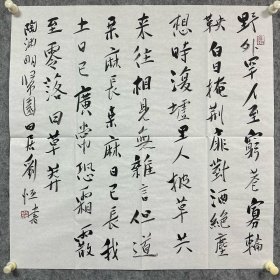 野外罕人窮巷寡輪
鞅白日掩荊扉對酒絕塵
想時復墟里人披草共
來往相見無雜言但道
桑麻長桑麻日已長我
土日已廣常恐霜霰
至零落同草莽
陶淵明歸園田居 劉恒書